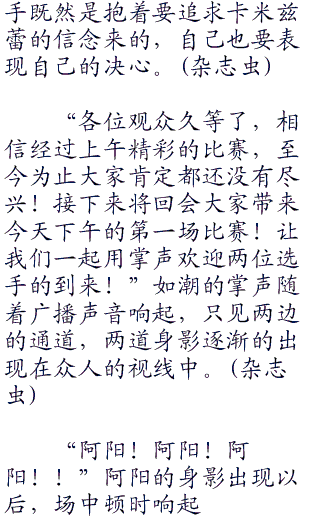 手既然是抱着要追求卡米兹
蕾的信念来的，自己也要表
现自己的决心。(杂志虫)
“各位观众久等了，相
信经过上午精彩的比赛，至
今为止大家肯定都还没有尽
兴！接下来将回会大家带来
今天下午的第一场比赛！让
我们一起用掌声欢迎两位选
手的到来！”如潮的掌声随
着广播声音响起，只见两边
的通道，两道身影逐渐的出
现在众人的视线中。(杂志
虫)
“阿阳！阿阳！阿
阳！！”阿阳的身影出现以
后，场中顿时响起